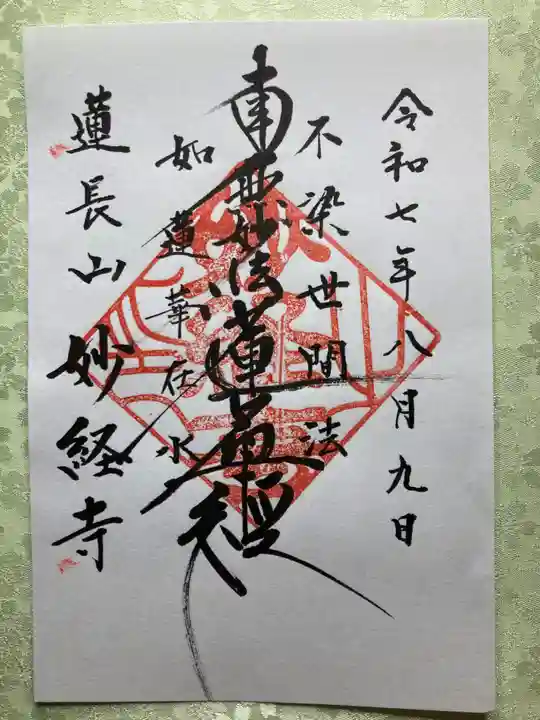 令和七年八月九日
不染世間法
南無妙法蓮華経
如蓮華在水
蓮長山妙経寺